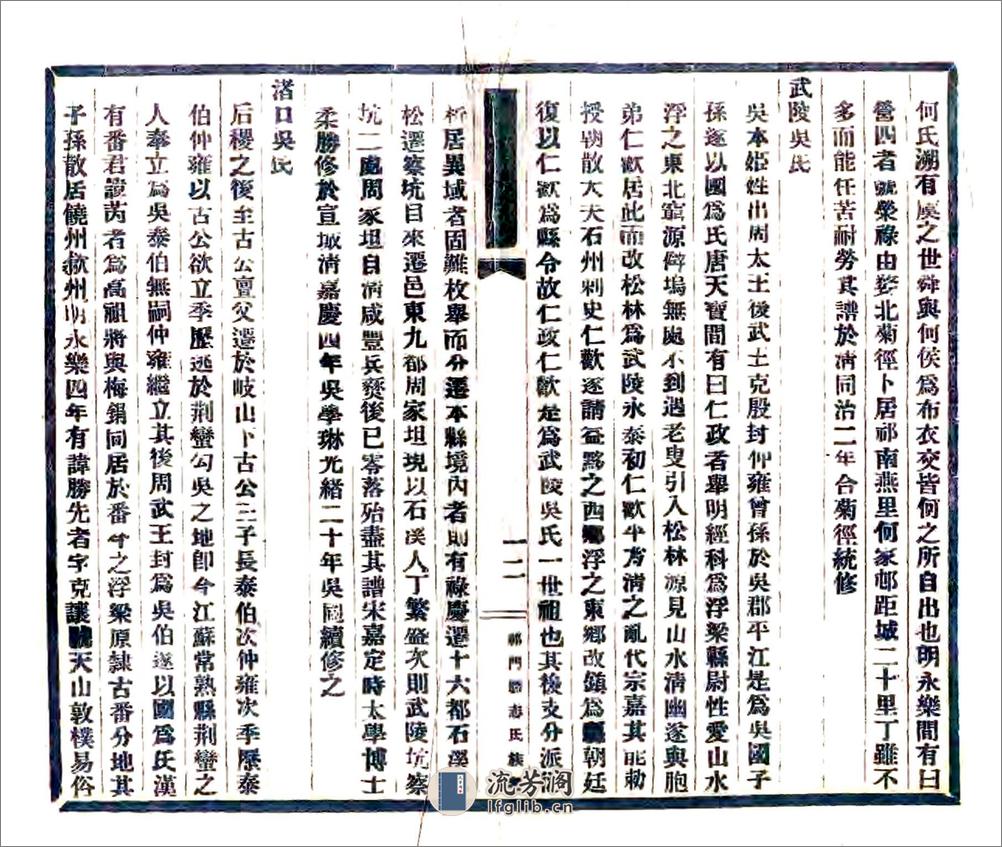 何氏溯有虞之世舜與何侯爲布衣交皆何之所自出也明永樂間有曰
營四者號榮祿由婺北菊徑卜居祁南燕里何家邨距城二十里丁雖不
多而能任苦耐勞其譜於淸同治二年合菊徑統修
武陵吳氏
吳本姬姓出周太王後武王克殷封仲雍曾孫於吳郡平江是爲吳國子
孫遂以國爲氏唐天寶間有曰仁政者舉明經科爲浮梁縣尉性愛山水
浮之東北窮源僻塢無處不到遇老叟引入松林源見山水淸幽遂與胞
弟仁歡居此而改松林爲武陵永泰初仁歡平方淸之亂代宗嘉其能勅
授朝散大夫石州刺史仁歡遂請益黟之西鄉浮之東鄉改鎮爲縣朝廷
復以仁歡爲縣令故仁政仁歡是爲武陵吳氏一世祖也其後支分派
析居異域者固難枚舉而分遷本縣境內者則有祿慶遷十六都石溪
松遷察坑目來遷邑東九都周家坦現以石溪人丁繁盛次則武陵坑察
坑二處周家坦自淸咸豐兵燹後已零落殆盡其譜宋嘉定時太學博士
柔勝修於宣城淸嘉慶四年吳學琳光緒二十年吳國續修之
渚口吳氏
后稷之後至古公亶父遷於岐山下古公三子長泰伯次仲雍次季歷泰
伯仲雍以古公欲立季歷逃於荆蠻勾吳之地卽今江蘇常熟縣荆蠻之
人奉立爲吳泰伯無嗣仲雍繼立其後周武王封爲吳伯遂以國爲氏漢
有番君諱芮者爲高祖將與梅鋗同居於番今之浮梁原隸古番分地其
子孫散居饒州歙州明永樂四年有諱勝先者字克讓號天山敦樸易俗
一二
祁門縣志氏族
流芳閣
lfglib.cn